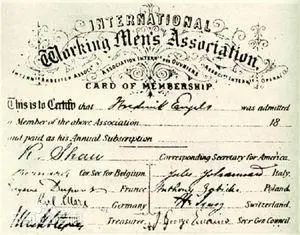 INTERNATIONAL
Working Men's Association
CARD OF MEMBERSHIP.
This is to Certify that Frederick Engels was admitted
a Member of the above Association 18
and paid as his Annual Subscription
R. Shaw Corresponding Secretary for America.
Cor. Sec. for Belgium Jules Johannard Italy.
Eugène Dupont France Anthony Zabicki Poland.
Karl Marx Germany H. Jung Switzerland.
Treasurer. J. George Eccarius Secr. Genl. Council.